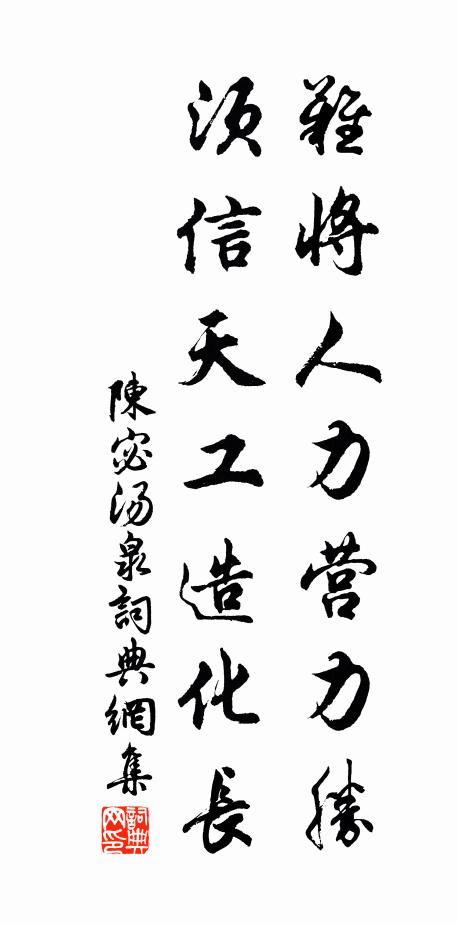 難將人力营力勝
須信天工造化長
陳宓汤泉詞典網集
詞典網印